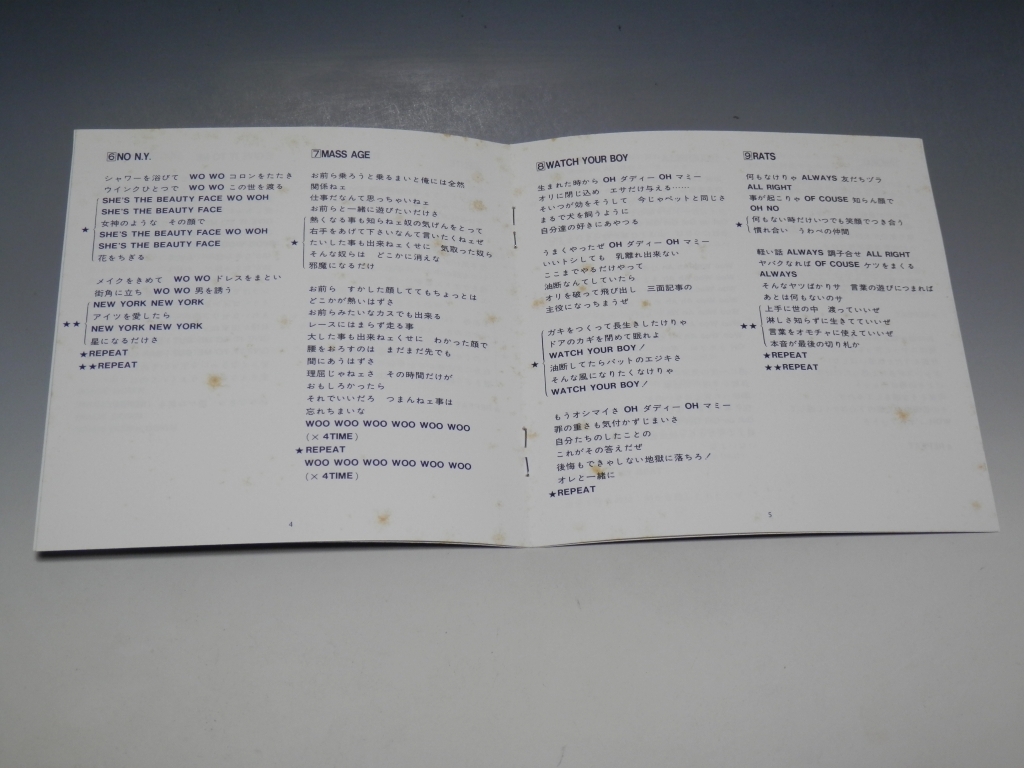 6 NO N.Y.
シャワーを浴びて WO WO コロンをたたき
ウインクひとつで WO WO この世を渡る
SHE'S THE BEAUTY FACE WO WOH
SHE'S THE BEAUTY FACE
女神のような その顔で
★
SHE'S THE BEAUTY FACE WO WOH
SHE'S THE BEAUTY FACE
花をちぎる
メイクをきめて WO WO ドレスをまとい
街角に立ち WO WO 男を誘う
NEW YORK NEW YORK
アイツを愛したら
★★
NEW YORK NEW YORK
星になるだけさ
★REPEAT
★★REPEAT
4
7 MASS AGE
お前ら乗ろうと乗るまいと俺には全然
関係ねェ
仕事だなんて思っちゃいねェ
お前らと一緒に遊びたいだけさ
熱くなる事も知らねェ奴の気げんをとって
右手をあげて下さいなんて言いたくねェぜ
★
たいした事も出来ねェくせに 気取った奴ら
そんな奴らは どこかに消えな
邪魔になるだけ
お前ら すかした顔しててもちょっとは
どこかが熱いはずさ
お前らみたいなカスでも出来る
レースにはまらず走る事
大した事も出来ねェくせに わかった顔で
腰をおろすのは まだまだ先でも
間にあうはずさ
理屈じゃねェさ その時間だけが
おもしろかったら
それでいいだろ つまんねェ事は
忘れちまいな
WOO WOO WOO WOO WOO WOO
(× 4TIME)
★REPEAT
WOO WOO WOO WOO WOO WOO
(× 4TIME)
8 WATCH YOUR BOY
生まれた時から OH ダディー OH マミー
オリに閉じ込め エサだけ与える……
そいつが効をそうして 今じゃペットと同じさ
まるで犬を飼うように
自分達の好きにあやつる
うまくやったぜ OH ダディー OH マミー
いいトシしても 乳離れ出来ない
ここまでやるだけやって
油断なんてしていたら
オリを破って飛び出し 三面記事の
主役になっちまうぜ
ガキをつくって長生きしたけりゃ
ドアのカギを閉めて眠れよ
WATCH YOUR BOY!
★
油断してたらバットのエジキさ
そんな風になりたくなけりゃ
WATCH YOUR BOY!
もうオシマイさ OH ダディー OH マミー
罪の重さも気付かずじまいさ
自分たちのしたことの
これがその答えだぜ
後悔もできゃしない地獄に落ちろ!
オレと一緒に
★REPEAT
9 RATS
何もなけりゃ ALWAYS 友だちヅラ
ALL RIGHT
事が起こりゃ OF COUSE 知らん顔で
OH NO
何もない時だけいつでも笑顔でつき合う
★
慣れ合い うわべの仲間
軽い話 ALWAYS 調子合せ ALL RIGHT
ヤバクなれば OF COUSE ケツをまくる
ALWAYS
そんなヤツばかりサ 言葉の遊びにつまれば
あとは何もないのサ
上手に世の中 渡っていいぜ
淋しさ知らずに生きてていいぜ
★★
言葉をオモチャに使えていいぜ
本音が最後の切り札か
★REPEAT
★★REPEAT
5